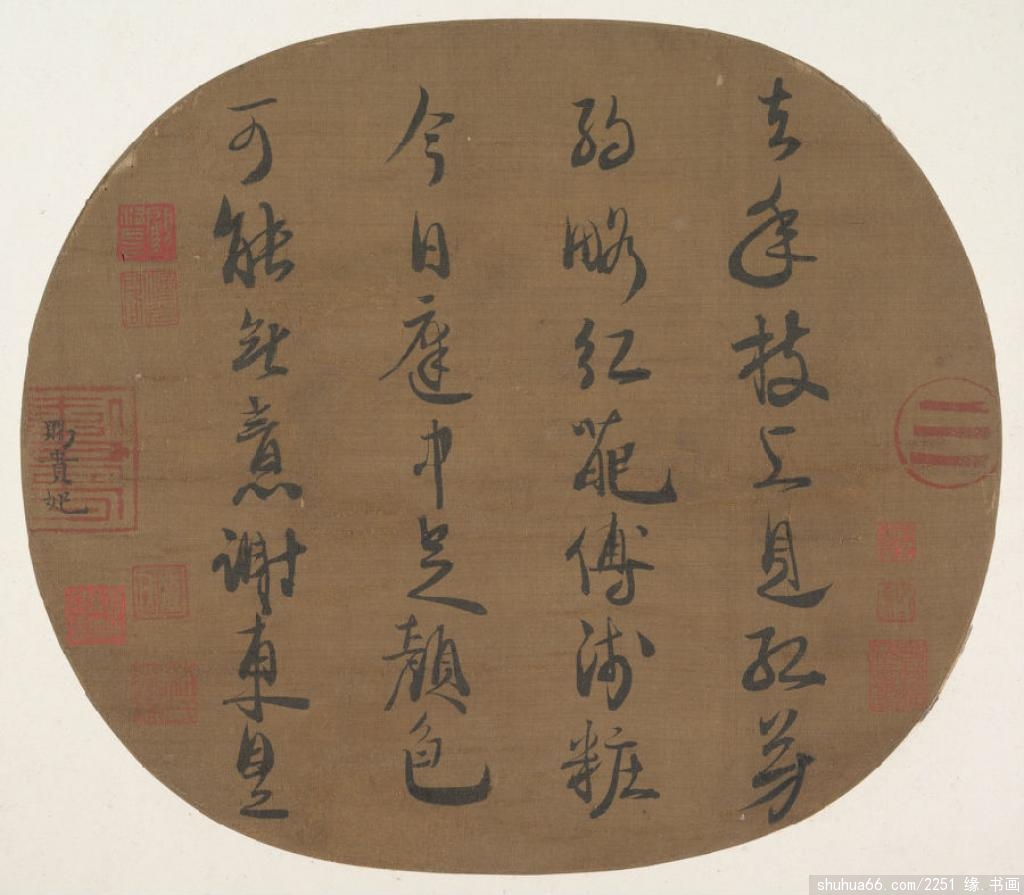 去年枝上見紅芳
約略紅葩傅淺粧
今日庭中足顏色
可能無意謝東皇
賜貴妃
shuhua66.com/2251 缘.书画